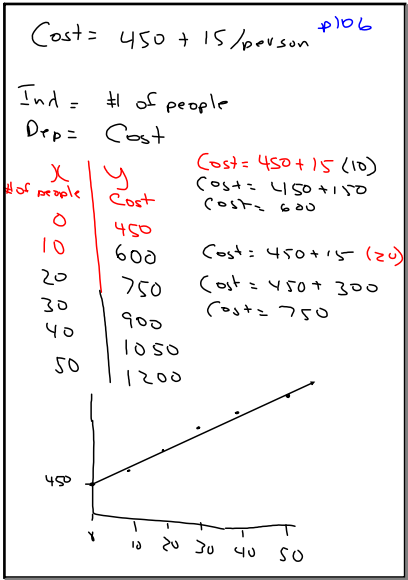 Cost = 450 + 15/person
p106
Ind = # of people
Dep = Cost
x y
# of people Cost
0 450
10 600
20 750
30 900
40 1050
50 1200
Cost = 450 + 15 (10)
Cost = 450 + 150
Cost = 600
Cost = 450 + 15 (20)
Cost = 450 + 300
Cost = 750
450
10 20 30 40 50